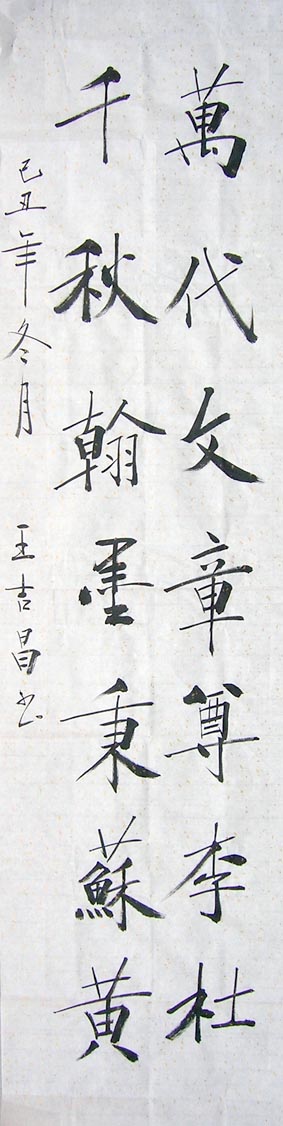 萬代文章尊李杜
千秋翰墨秉蘇黄
己丑年冬月 王吉昌书